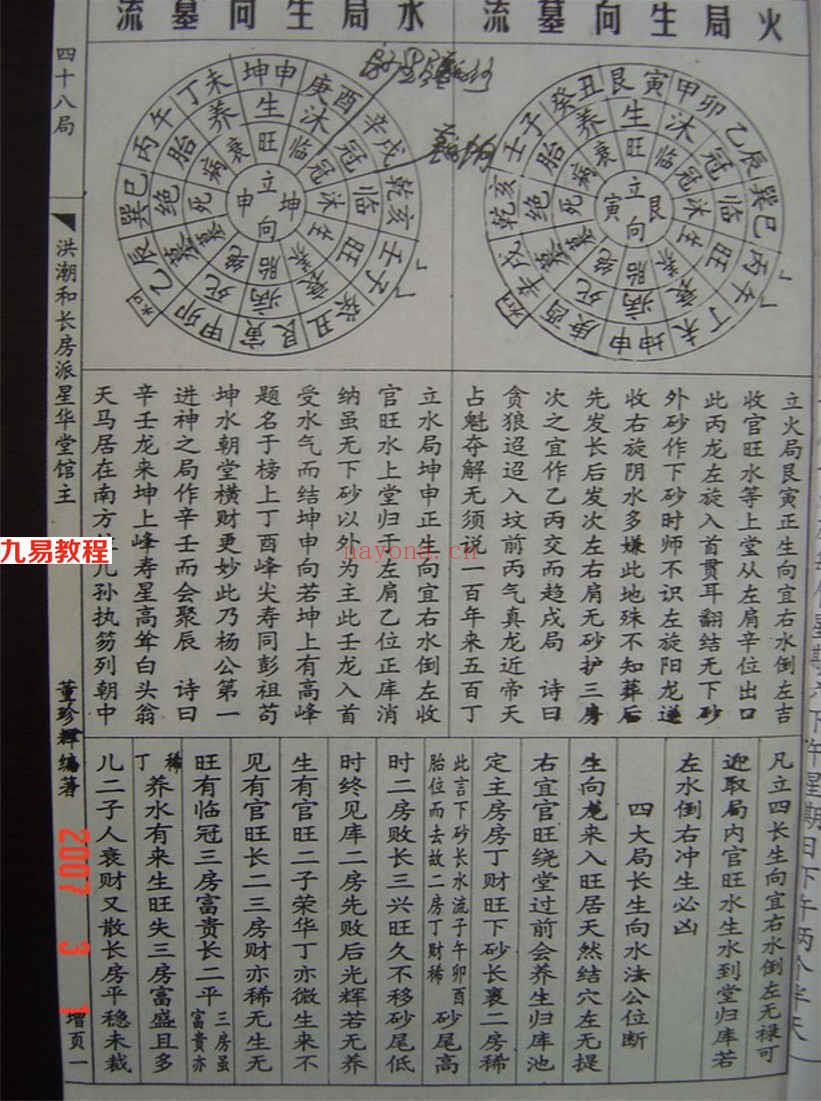 火局生向墓流
水局生向墓流
壬子
癸丑
艮寅
甲卯
乙辰
巽巳
丙午
丁未
坤申
庚酉
辛戌
乾亥
胎
养
生
沐
冠
临
旺
绝
死
病
衰
立
艮
向
寅
丁未
坤申
庚酉
辛戌
乾亥
壬子
癸丑
艮寅
甲卯
乙辰
巽巳
丙午
胎
养
生
沐
冠
临
旺
绝
死
病
衰
立
坤
向
申
立火局艮寅正生向宜右水倒左吉
收官旺水等上堂从左肩辛位出口
此丙龙左旋入首贯耳翻结无下砂
外砂作下砂时师不识左旋阳龙逆
收右旋阴水多嫌此地殊不知葬后
先发长后发次左右肩无砂护三房
次之宜作乙丙交而趋戌局 诗曰
贪狼迢迢入坟前丙气真龙近帝天
占魁夺解无须说一百年来五百丁
立水局坤申正生向宜右水倒左收
官旺水上堂归于左肩乙位正库消
纳虽无下砂以外为主此壬龙入首
受水气而结坤申向若坤上有高峰
题名于榜上丁酉峰尖寿同彭祖苟
坤水朝堂横财更妙此乃杨公第一
进神之局作辛壬而会聚辰 诗曰
辛壬龙来坤上峰寿星高耸白头翁
天马居在南方 儿孙执笏列朝中
凡立四长生向宜右水倒左无禄可
迎取局内官旺水生水到堂归库若
左水倒右冲生必凶
四大局长生向水法公位断
生向龙来入旺居天然结穴左无提
右宜官旺绕堂过前会养生归库池
定主房房丁财旺下砂长裹二房稀
此言下砂长水流子午卯酉
胎位而去故二房丁财稀
砂尾高
时二房败长三兴旺久不移砂尾低
时终见库二房先败后光辉若无养
生有官旺二子荣华丁亦微生来不
见有官旺长二三房财亦稀无生无
旺有临冠三房富贵长二平
三房虽
富贵亦
稀
丁
养水有来生旺失三房富盛且多
儿二子人衰财又散长房平稳未裁
四十八局
洪潮和长房派星华堂馆主
董珍辉编著
增页一
2007 3 1
九易教程
nayona.cn